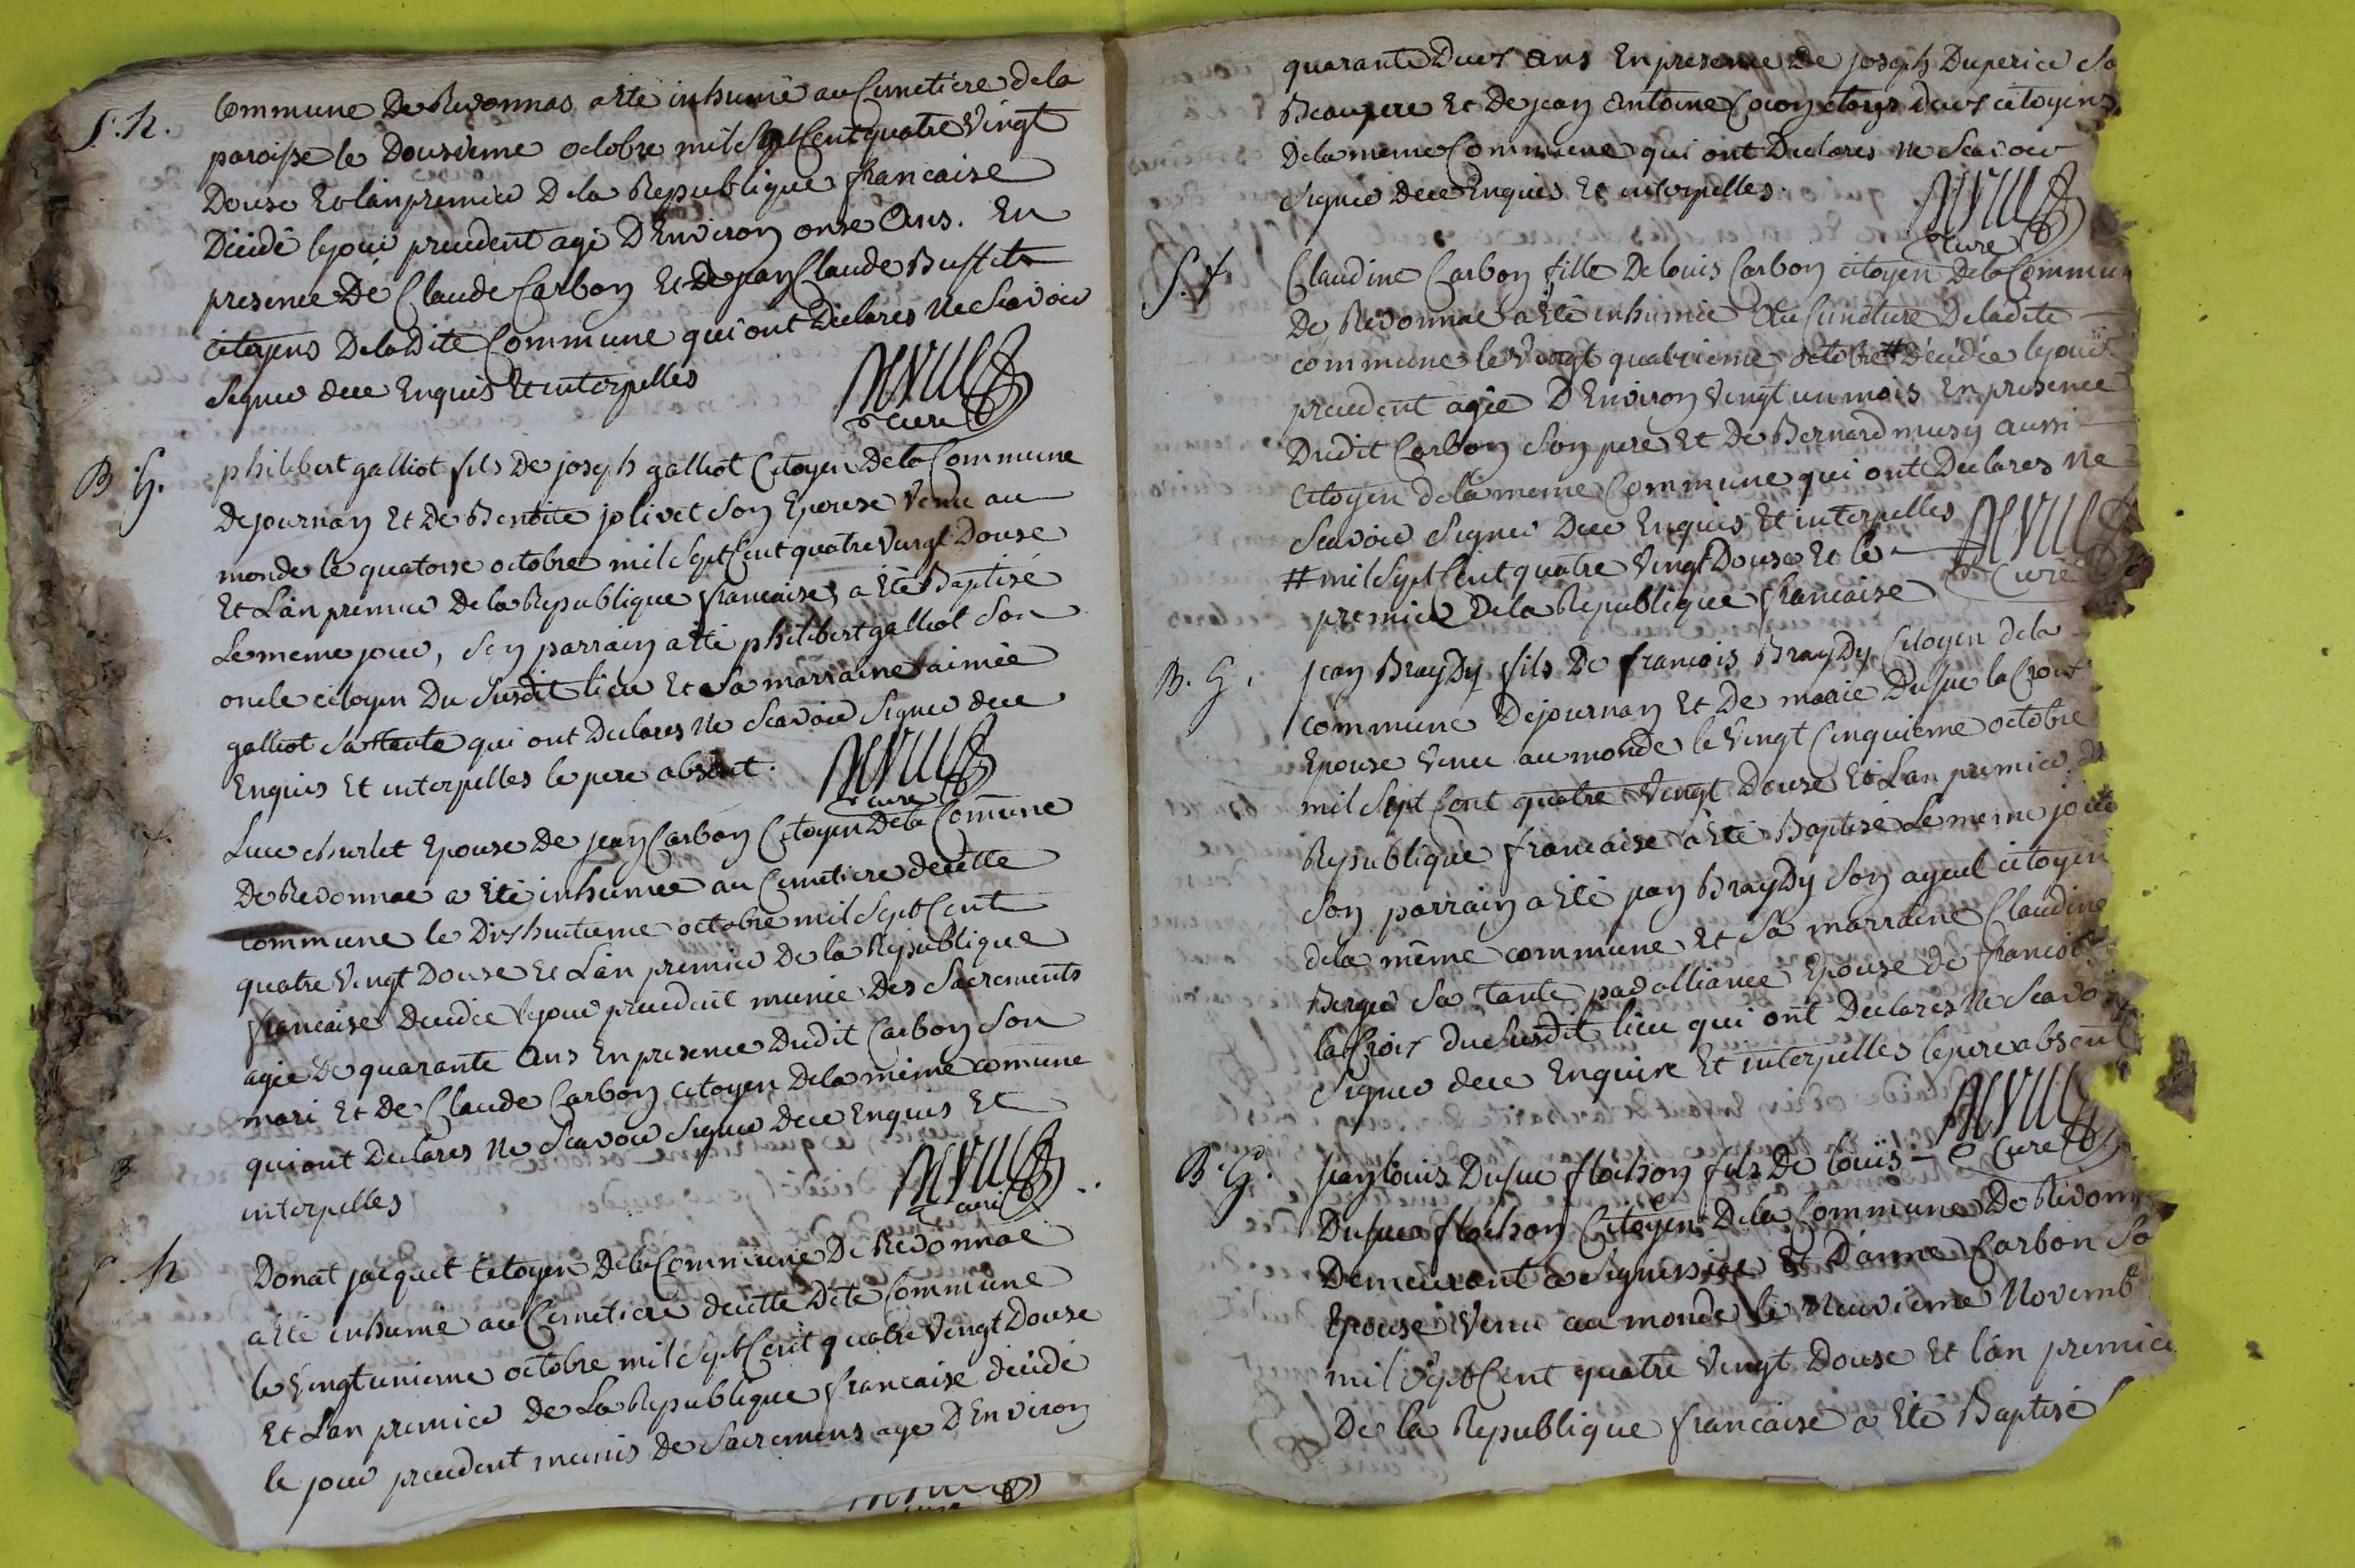 S. h.
Commune De Revonnas a Eté inhumé au Cimetiere dela
paroisse le Dousieme octobre mil Sept Cent quatre Vingt
Douse Et lan premier De la Republique francaise
Décédé le jour precedent agé D'Environ onse Ans. En
presence De Claude Carbon Et De jean Claude Buffet
citoyens De la Dite Commune qui ont Declares Ne Scavoir
Signer dece Enquis Et interpelles
curé
B. G.
philibert galliot fils De joseph galliot Citoyen De la Commune
De journan Et De Benoite jolivet Son Epouse Venu au
monde le quatorse octobre mil Sept Cent quatre Vingt Douse
Et L'an premier De la Republique francaise, a Eté Baptisé
Le meme jour, Son parrain a Eté philibert galliot Son
oncle citoyen Du Susdit lieu Et Sa marraine aimée
galliot Sa tante qui ont Declares Ne Scavoir Signer dece
Enquis Et interpelles le pere absent.
curé
Luce churlet Epouse De jean Carbon Citoyen De la Comune
De Revonnas a Eté inhumée au Cimetiere decette
commune le Dixhuitieme octobre mil Sept Cent
quatre Vingt Douse Et L'an premier De la Republique
francaise Decedée le jour precedent munie Des Sacrements
agée De quarante Ans En presence Dudit Carbon Son
mari Et De Claude Carbon citoyen Dela même comune
qui ont Declares Ne Scavoir Signer Dece Enquis Et
interpelles
curé
S. h
Donat jacquet Citoyen De la Commune De Revonnas
a Eté inhumé au Cimetiere decette Dite Commune
le Vingtunieme octobre mil Sept Cent quatre Vingt Douse
Et L'an premier De La Republique francaise décédé
le jour precedent munis De Sacremens age D'Environ
quarante Deux Ans En presence De joseph Duperier So
Beaupere Et De jean Antoine Cocon tous deux citoyens
De la meme Commune qui ont Declares Ne Scavoir
Signer Dece Enquis Et interpelles.
curé
S. f.
Claudine Carbon fille De louis Carbon citoyen De la Commun
De Revonnas a Eté inhumée Au Cimetiere De ladite
commune le Vingt quatrieme octobre # Décédée le jour
precedent agée D'Environ Vingt un mois En presence
Dudit Carbon Son pere Et De Bernard musy aussi
Citoyen de la meme Commune qui ont Declares Ne
Scavoir Signer Dece Enquis Et interpelles
# mil Sept Cent quatre Vingt Douse Et le
premier De la Republique francaise
curé
B. G.
jean BrayDy fils De francois BrayDy Citoyen de la
commune De journan Et De marie Dufue la Croix
Epouse Venu au monde le Vingt Cinquieme octobre
mil Sept Cent quatre Vingt Douse Et L'an premier de
Republique francaise a Eté Baptisé Le meme jour
Son parrain a Eté jean BrayDy Son ayeul citoyen
de la même commune Et Sa marraine Claudine
Berger Sa Tante par alliance Epouse de francois
la Croix du Susdit lieu qui ont Declares Ne Scavoi
Signer dece Enquire Et interpelles le pere absent
B. G.
jean louis Dufue flochon fils De louis
curé
Dufue flochon Citoyen De la Commune De Revonn
Demeurant a Seignissiat Et D'anne Carbon So
Epouse Venu au monde le Neuvieme Novemb
mil Sept Cent quatre Vingt Douse Et l'an premier
De la Republique francaise a Eté Baptisé